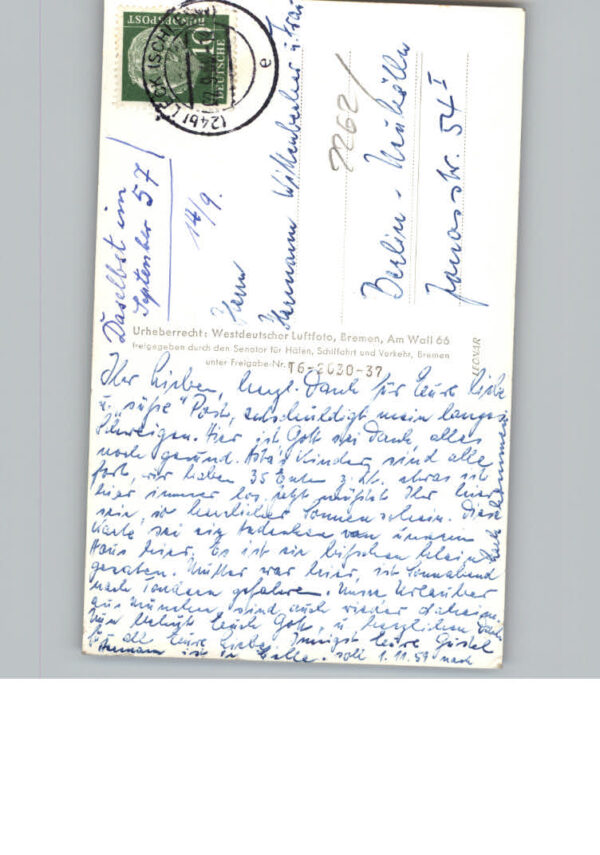 DEUTSCHE
BUNDESPOST
10
(24b) LECK
e
Daselbst im
September 57
14/9.
Herrn
Hermann Wittenbecher u. Frau
Berlin-Neukölln
Jonasstr. 54 I
Urheberrecht: Westdeutscher Luftfoto, Bremen, Am Wall 66
Freigegeben durch den Senator für Häfen, Schiffahrt und Verkehr, Bremen
unter Freigabe-Nr. T6-2630-37
LEONAR
Ihr Lieben, herzl. Dank für Eure liebe
u. "süße" Post, entschuldigt mein langes
Schweigen. Hier ist Gott sei Dank, alles
noch gesund. Asta's Kinder sind alle
fort, wir haben 35 Enten z. Zt. etwas ist
hier immer los. Jetzt müßtet Ihr hier
sein, so herrlicher Sonnenschein. Diese
Karte sei ein Andenken von unserem
Haus hier. Es ist ein bißchen klein
geraten. Mutter war hier, ist Sonnabend
nach Tondern gefahren. Unsere Urlauber
aus München sind auch wieder daheim.
Nun behüt Euch Gott, u. herzlichen Dank
für all Eure Liebe. Innigst Eure Gustel
Hermann ist in Celle. soll 1.11.59 nach